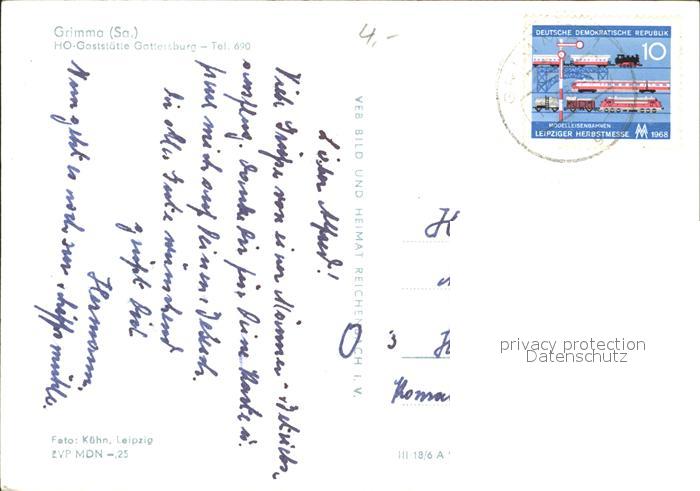 Grimma (Sa.)
HO-Gaststätte Gattersburg – Tel. 690
4,-
DEUTSCHE DEMOKRATISCHE REPUBLIK
10
MODELLEISENBAHNEN
LEIPZIGER HERBSTMESSE 1968
Lieber Alfred!
Viele Grüße von einer Männer-Betriebs-
ausflug. Danke dir für Deine Karte u.
freue mich auf Deinen Besuch.
Dir alles Gute wünschend
grüßt Dich
Hermann.
Nun geht es noch zur Schiffsmühle.
VEB BILD UND HEIMAT REICHENBACH i. V.
Foto: Kühn, Leipzig
EVP MDN –,25
III 18/6 A
privacy protection
Datenschutz